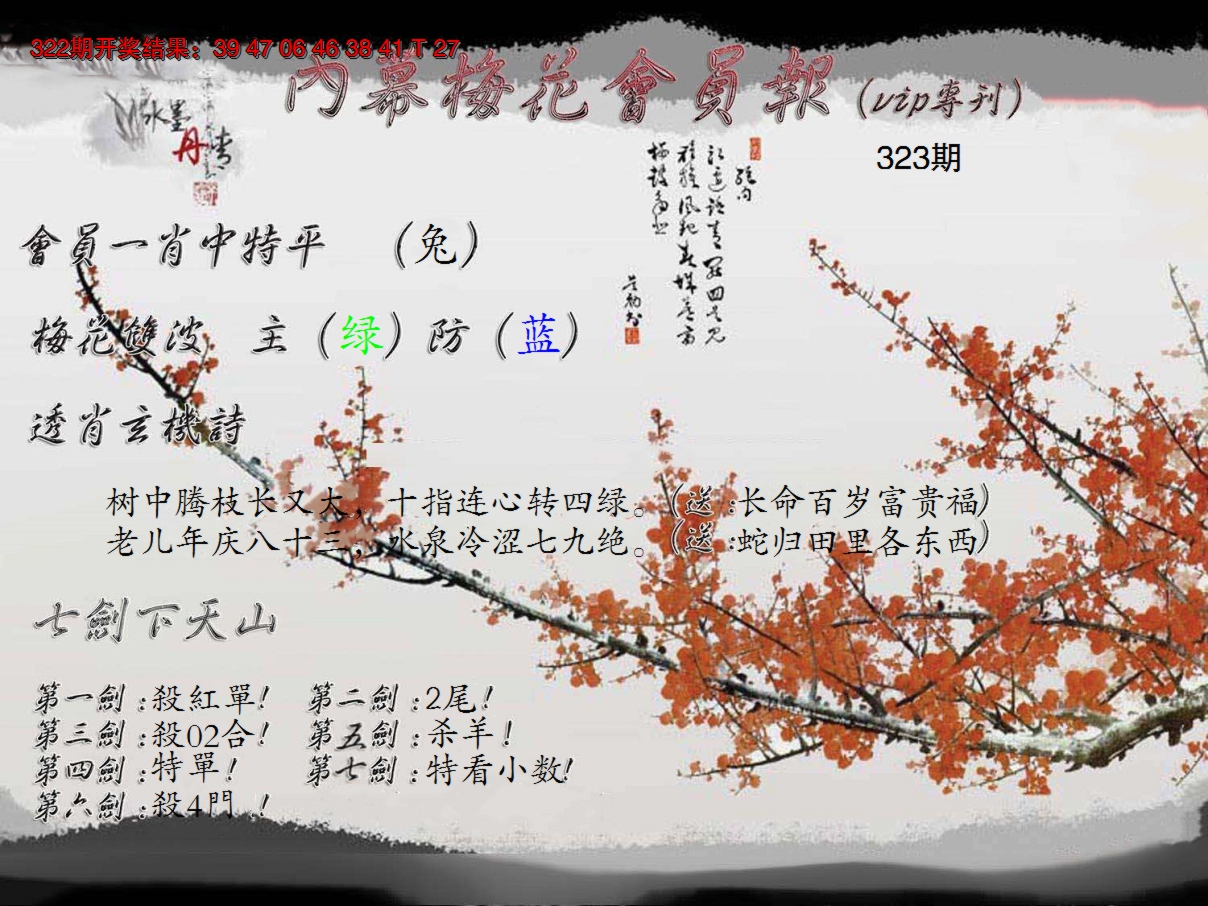 322期开奖结果：39 47 06 46 38 41 T 27
內幕梅花會員報(vip專刊)
水墨丹青
323期
會員一肖中特平 （兔）
梅花雙波 主（绿）防（蓝）
透肖玄機詩
树中腾枝长又大，十指连心转四绿。(送:长命百岁富贵福)
老儿年庆八十三，水泉冷涩七九绝。(送:蛇归田里各东西)
七劍下天山
第一劍:殺紅單! 第二劍:2尾!
第三劍:殺02合! 第五劍:杀羊!
第四劍:特單! 第七劍:特看小数!
第六劍:殺4門 !